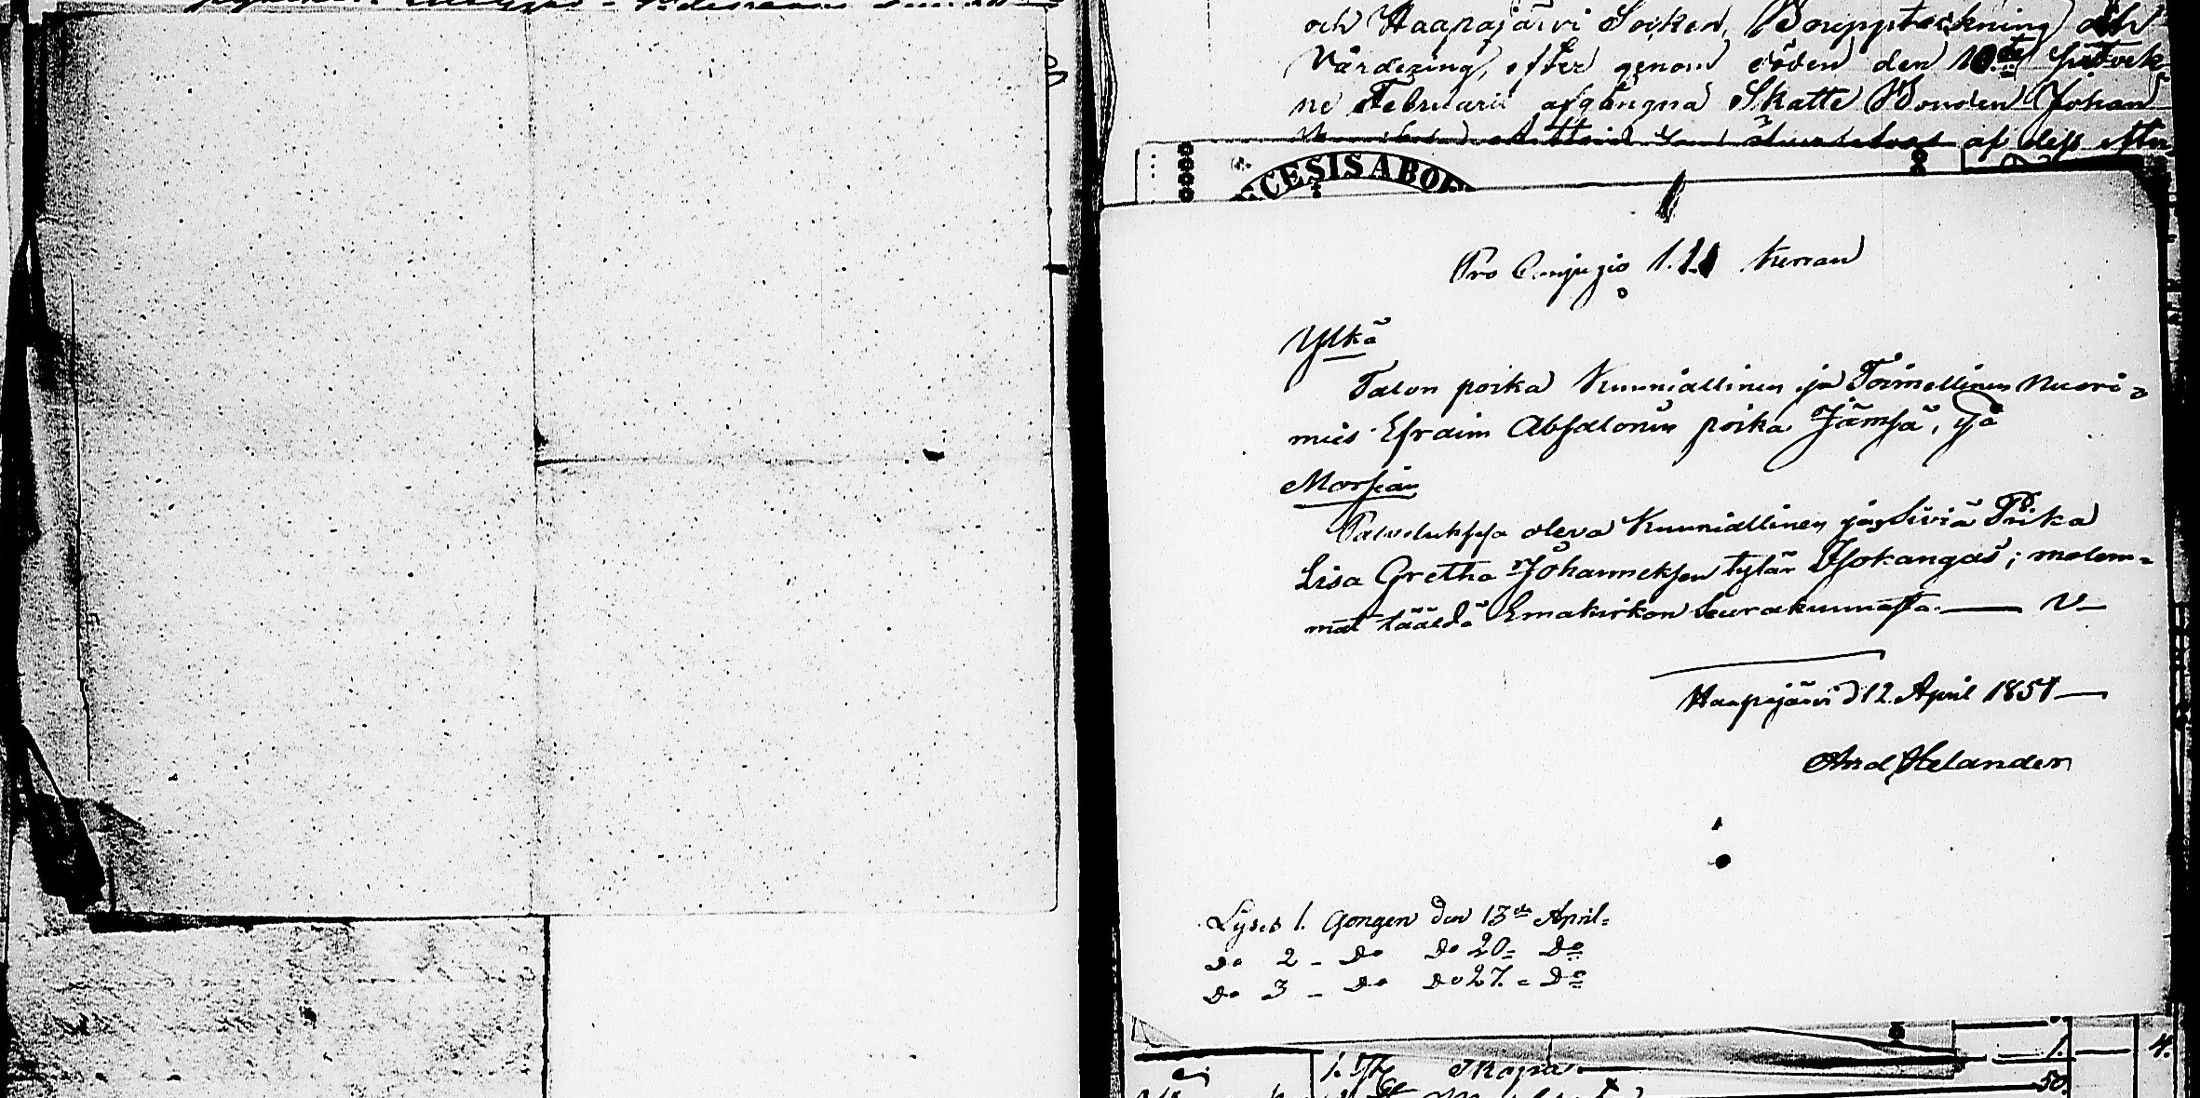 och Haapajärvi Socken, Bouppteckning och
Värdering, efter genom döden den 10de sistvek
ne Februarii afgångna Skatte Bonden Johan
af dess efter
ECESIS ABOE
Pro Conjugio 1. Kerran
Ylkä
Talon poika Kuuniallinen ja Toimellinen Nuori=
mies Efraim Absalonin poika Jämsä, ja
Morsian
Palveluksesa oleva Kuuniallinen ja Siviä Piika
Lisa Gretha Johanneksen tytär Isokangas; molem=
mat täældä Emäkirkon Seurakunnasta.
Haapajärvi d 12. April 1851
And Helander
Lystes 1. Gongen den 13de April=
do 2 - do do 20= do
do 3 - do do 27. = do
1. 4.
50.